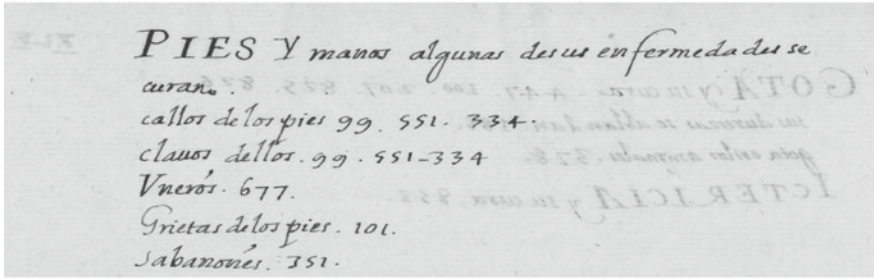 PIES Y manos algunas desus enfermedades se
curan.
callos delos pies 99. 551. 334.
clauos dellos. 99. 551-334
Vneros. 677.
Grietas delos pies. 101.
Sabanones. 351.